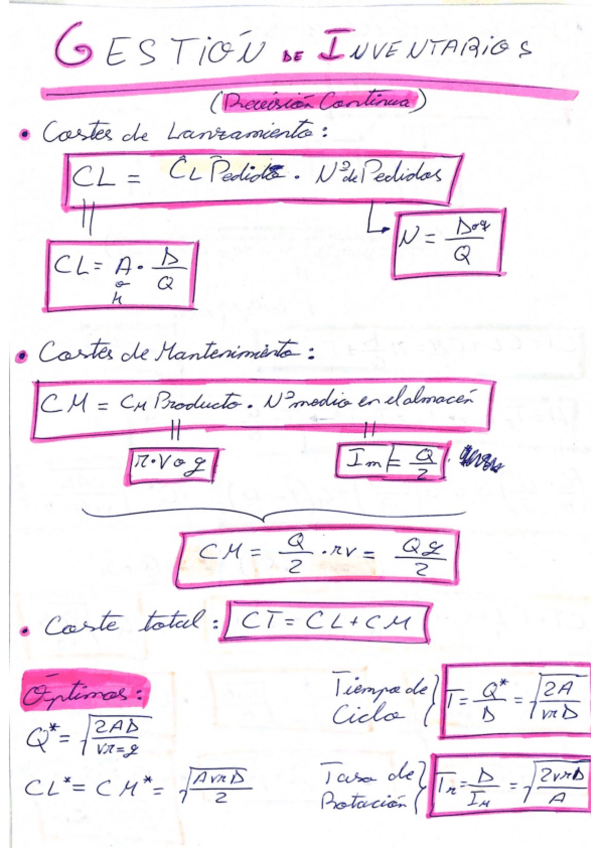 GESTIÓN DE INVENTARIOS
(Revisión Continua)
• Costes de Lanzamiento:
CL = CL Pedido · Nº de Pedidos
||
CL = A · D/Q
o
k
N = D o q / Q
• Costes de Mantenimiento:
CM = CM Producto · Nº medio en el almacén
|| ||
r·v o g
Im = Q/2
CM = Q/2 · rv = Qg/2
• Coste total: CT = CL + CM
Óptimos:
Q* = √(2AD/vr=g)
CL* = CM* = √(AvrD/2)
Tiempo de Ciclo } T = Q*/D = √(2A/vrD)
Tasa de Rotación } Tr = D/IM = √(2vrD/A)